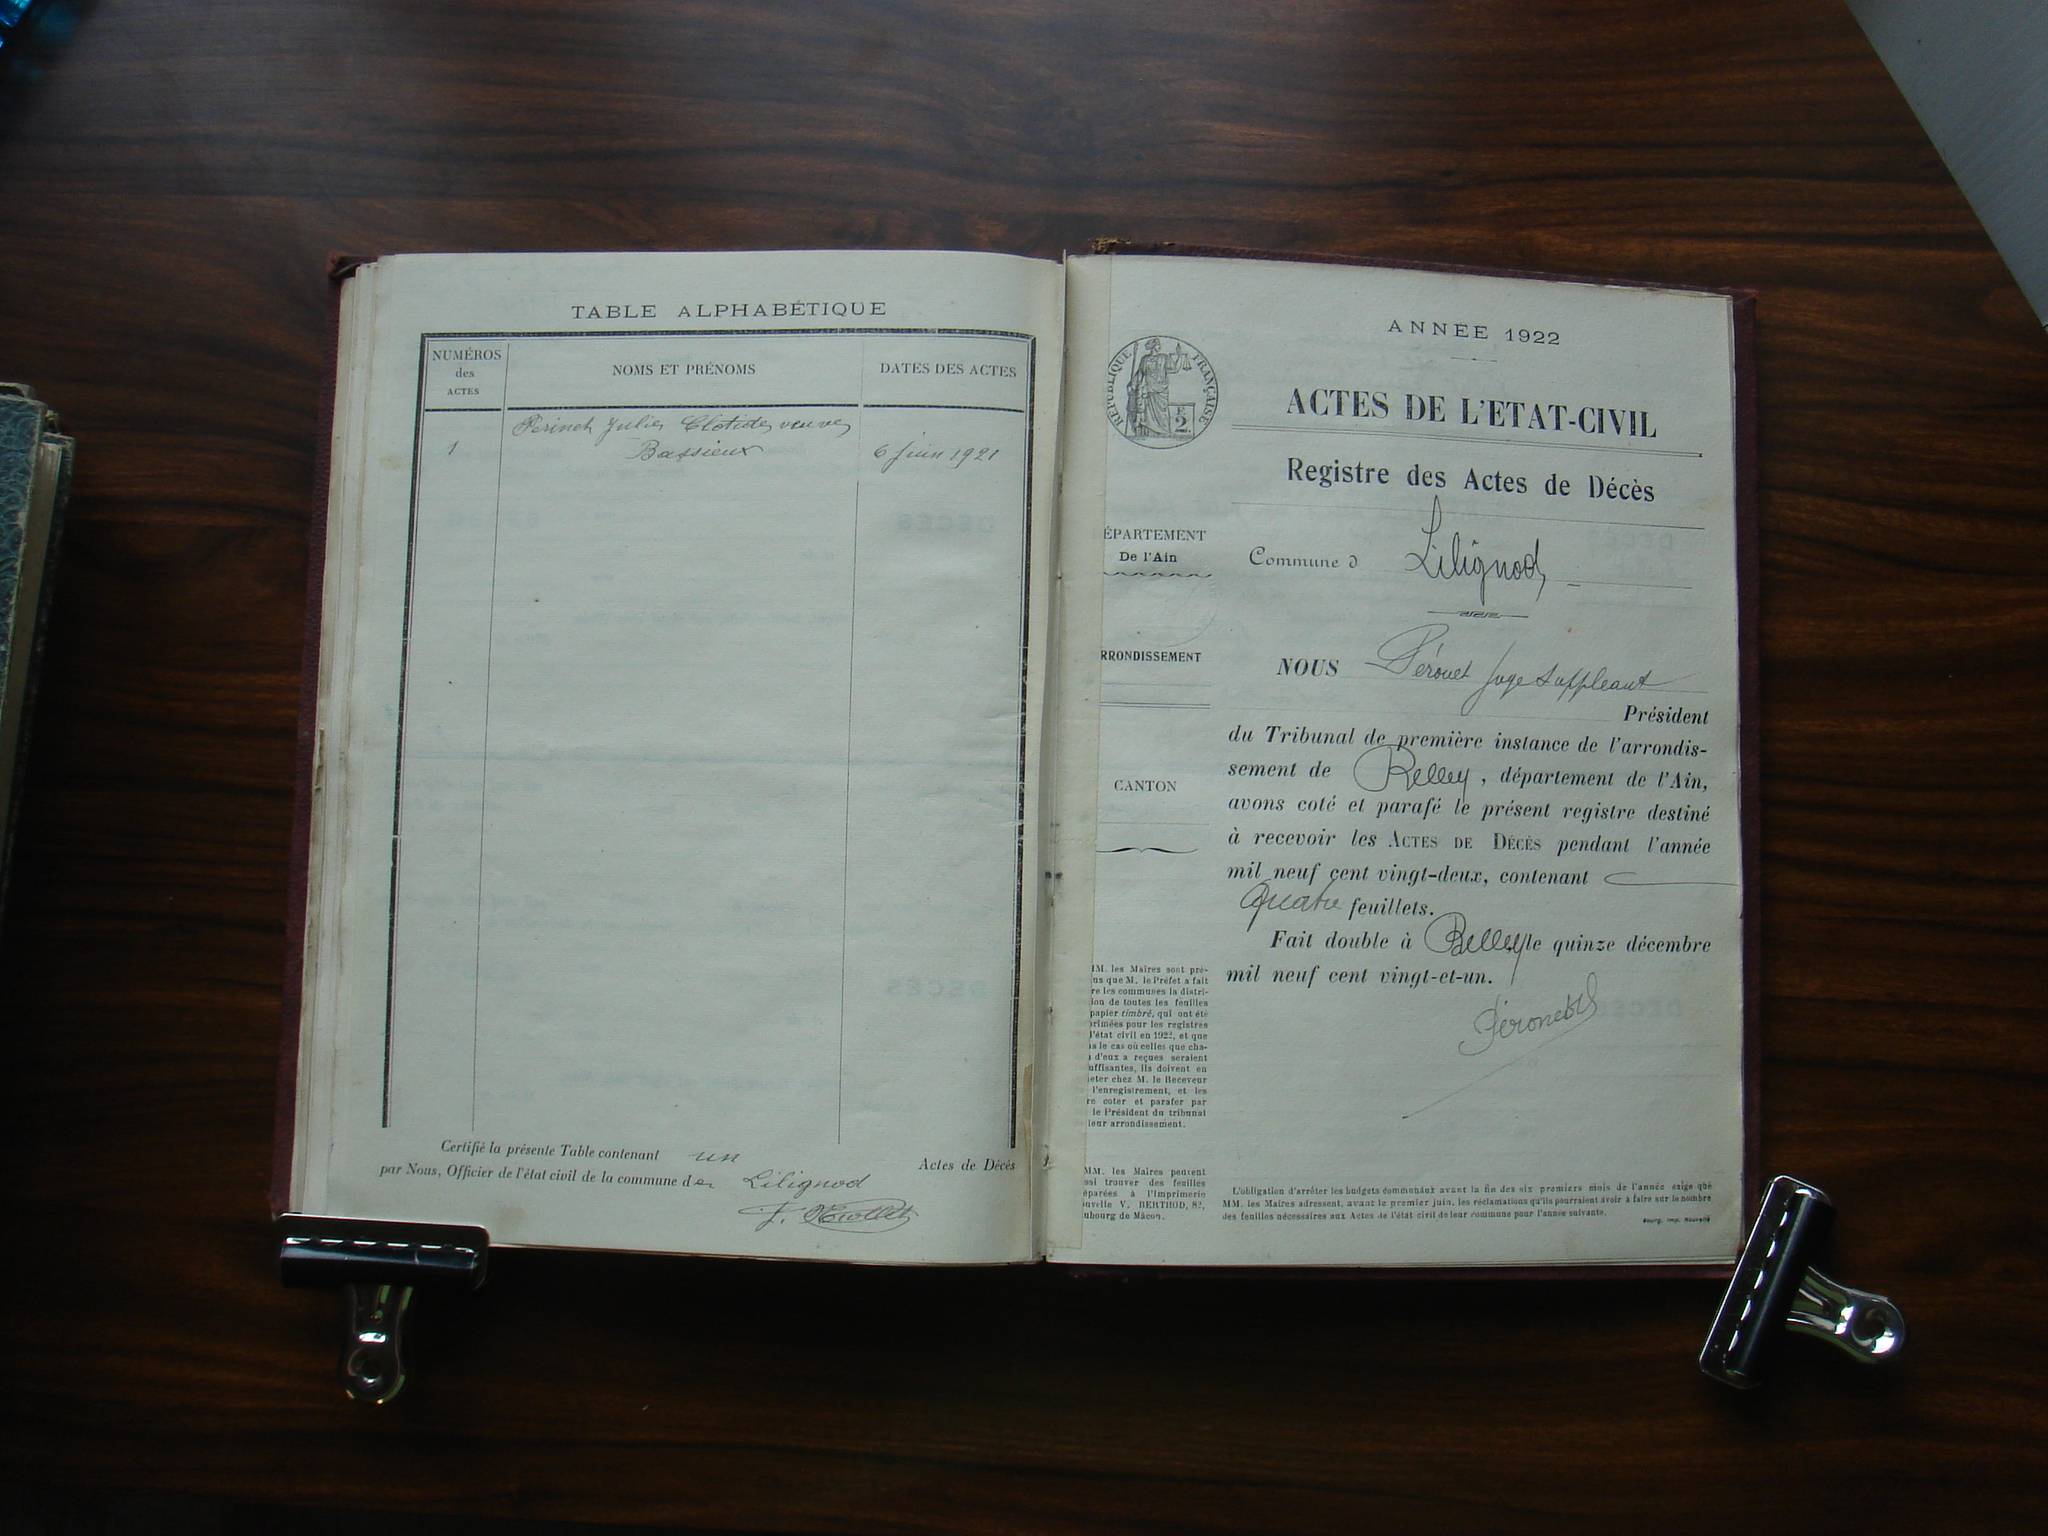 TABLE ALPHABÉTIQUE
NUMÉROS
des
ACTES
NOMS ET PRÉNOMS
DATES DES ACTES
Perinet Julie Clotide veuve
1 Bassieux 6 juin 1921
Certifié la présente Table contenant un Actes de Décès
par Nous, Officier de l'état civil de la commune de Lilignod
ANNEE 1922
RÉPUBLIQUE FRANÇAISE
2
ACTES DE L'ETAT-CIVIL
Registre des Actes de Décès
ÉPARTEMENT
De l'Ain
Commune d Lilignod
RRONDISSEMENT
NOUS Pérouet Juge Suppleant
Président
du Tribunal de première instance de l'arrondis-
sement de Belley, département de l'Ain,
CANTON
avons coté et parafé le présent registre destiné
à recevoir les ACTES DE DÉCÈS pendant l'année
mil neuf cent vingt-deux, contenant
Quatre feuillets.
Fait double à Belley le quinze décembre
mil neuf cent vingt-et-un.
MM. les Maires sont pré-
us que M. le Préfet a fait
re les communes la distri-
ion de toutes les feuilles
papier timbré, qui ont été
primées pour les registres
l'état civil en 1922, et que
s le cas où celles que cha-
d'eux a reçues seraient
uffisantes, ils doivent en
eter chez M. le Receveur
l'enregistrement, et les
re coter et parafer par
le Président du tribunal
leur arrondissement.
MM. les Maires peuvent
ssi trouver des feuilles
éparées à l'Imprimerie
uvelle V. BERTHOD, 82,
ubourg de Mâcon.
L'obligation d'arrêter les budgets communaux avant la fin des six premiers mois de l'année exige que
MM. les Maires adressent, avant le premier juin, les réclamations qu'ils pourraient avoir à faire sur le nombre
des feuilles nécessaires aux Actes de l'état civil de leur commune pour l'année suivante.
Bourg, Imp. Nouvelle